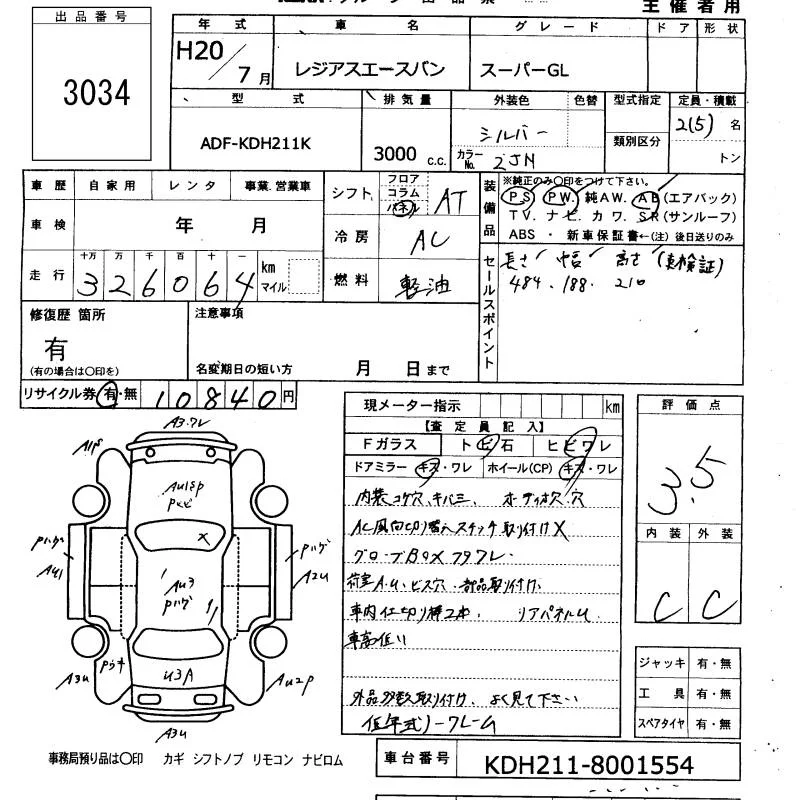 主催者用
出品番号
3034
年式 車名 グレード ドア 形状
H20/7月 レジアスエースバン スーパーGL
型式 排気量 外装色 色替 型式指定 定員・積載
ADF-KDH211K 3000 c.c. シルバー 2(5)名
カラーNo. 2JN 類別区分 トン
車歴 自家用 レンタ 事業.営業車
車検 年 月
走行 十万 万 千 百 十 一
326064 km マイル
シフト フロア コラム パネル AT
冷房 AC
燃料 軽油
装備品
※純正のみ〇印をつけて下さい。
PS PW. 純AW. AB(エアバック)
TV. ナビ. カワ. SR(サンルーフ)
ABS ・ 新車保証書←(注) 後日送りのみ
セールスポイント
長さ 幅 高さ (車検証)
484. 188. 210
修復歴 箇所
有
(有の場合は〇印を)
注意事項
名変期日の短い方 月 日まで
リサイクル券 有・無 10840円
現メーター指示 km
【査定員記入】
Fガラス トビ石 ヒビワレ
ドアミラー キズ・ワレ ホイール(CP) キズ・ワレ
内装コゲ穴、キバミ、 ボディ小穴.穴
AC風向切り替えスイッチ取り付けX
グローブBOXフタワレ.
荷室A.U.ビス穴.部品取り付け.
車内仕切り棒2本. リアパネルU
車高低い
外品多数取り付け、よく見て下さい
低年式ノークレーム
評価点
3.5
内装 外装
C C
ジャッキ 有・無
工具 有・無
スペアタイヤ 有・無
A3.ワレ
A1P
AU1SP
Pハゲ
AU1
X
AU3
Pハゲ
Pハゲ
A2U
A3U
U3A
AU2P
A3U
事務局預り品は〇印 カギ シフトノブ リモコン ナビロム
車台番号 KDH211-8001554